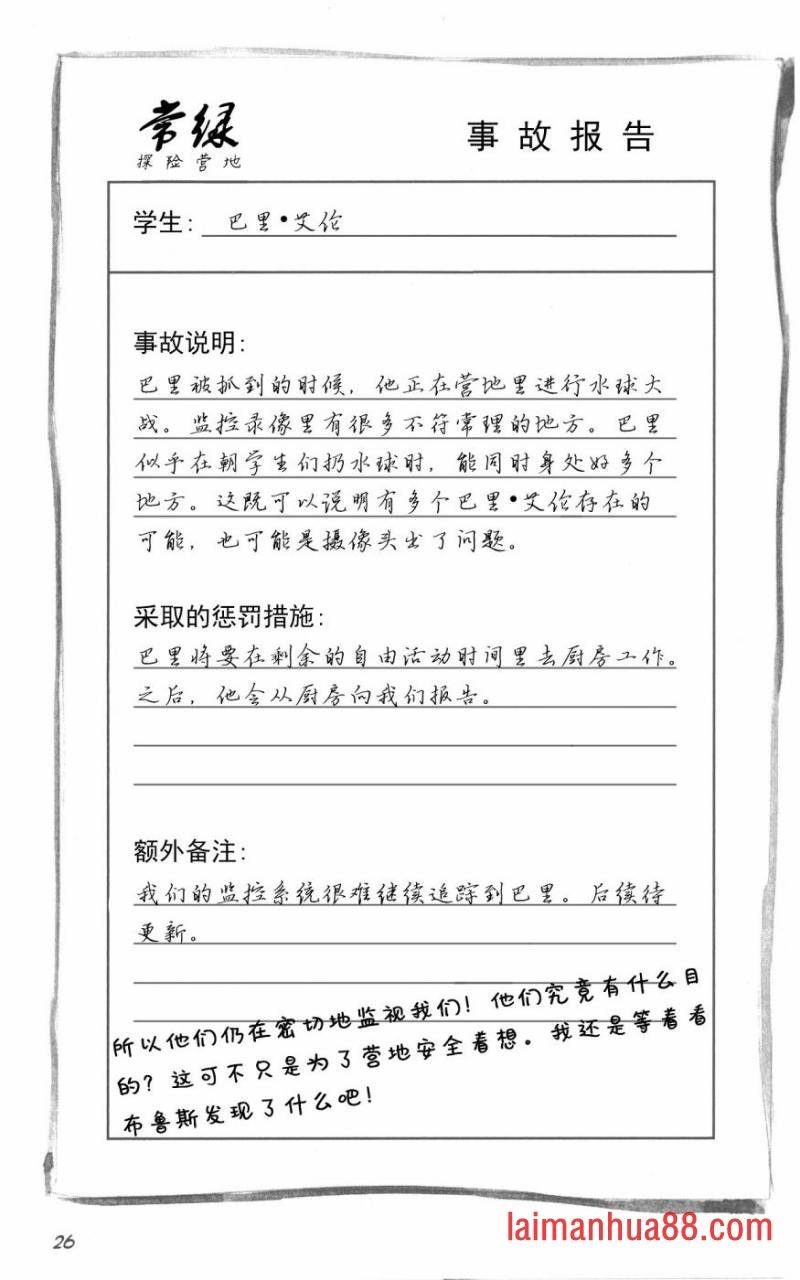 常绿
探险营地
事故报告
学生：巴里•艾伦
事故说明：
巴里被抓到的时候，他正在营地里进行水球大
战。监控录像里有很多不符常理的地方。巴里
似乎在朝学生们扔水球时，能同时身处好多个
地方。这既可以说明有多个巴里•艾伦存在的
可能，也可能是摄像头出了问题。
采取的惩罚措施：
巴里将要在剩余的自由活动时间里去厨房工作。
之后，他会从厨房向我们报告。
额外备注：
我们的监控系统很难继续追踪到巴里。后续待
更新。
所以他们仍在密切地监视我们！他们究竟有什么目
的？这可不只是为了营地安全着想。我还是等着看
布鲁斯发现了什么吧！
26
laimanhua88.com